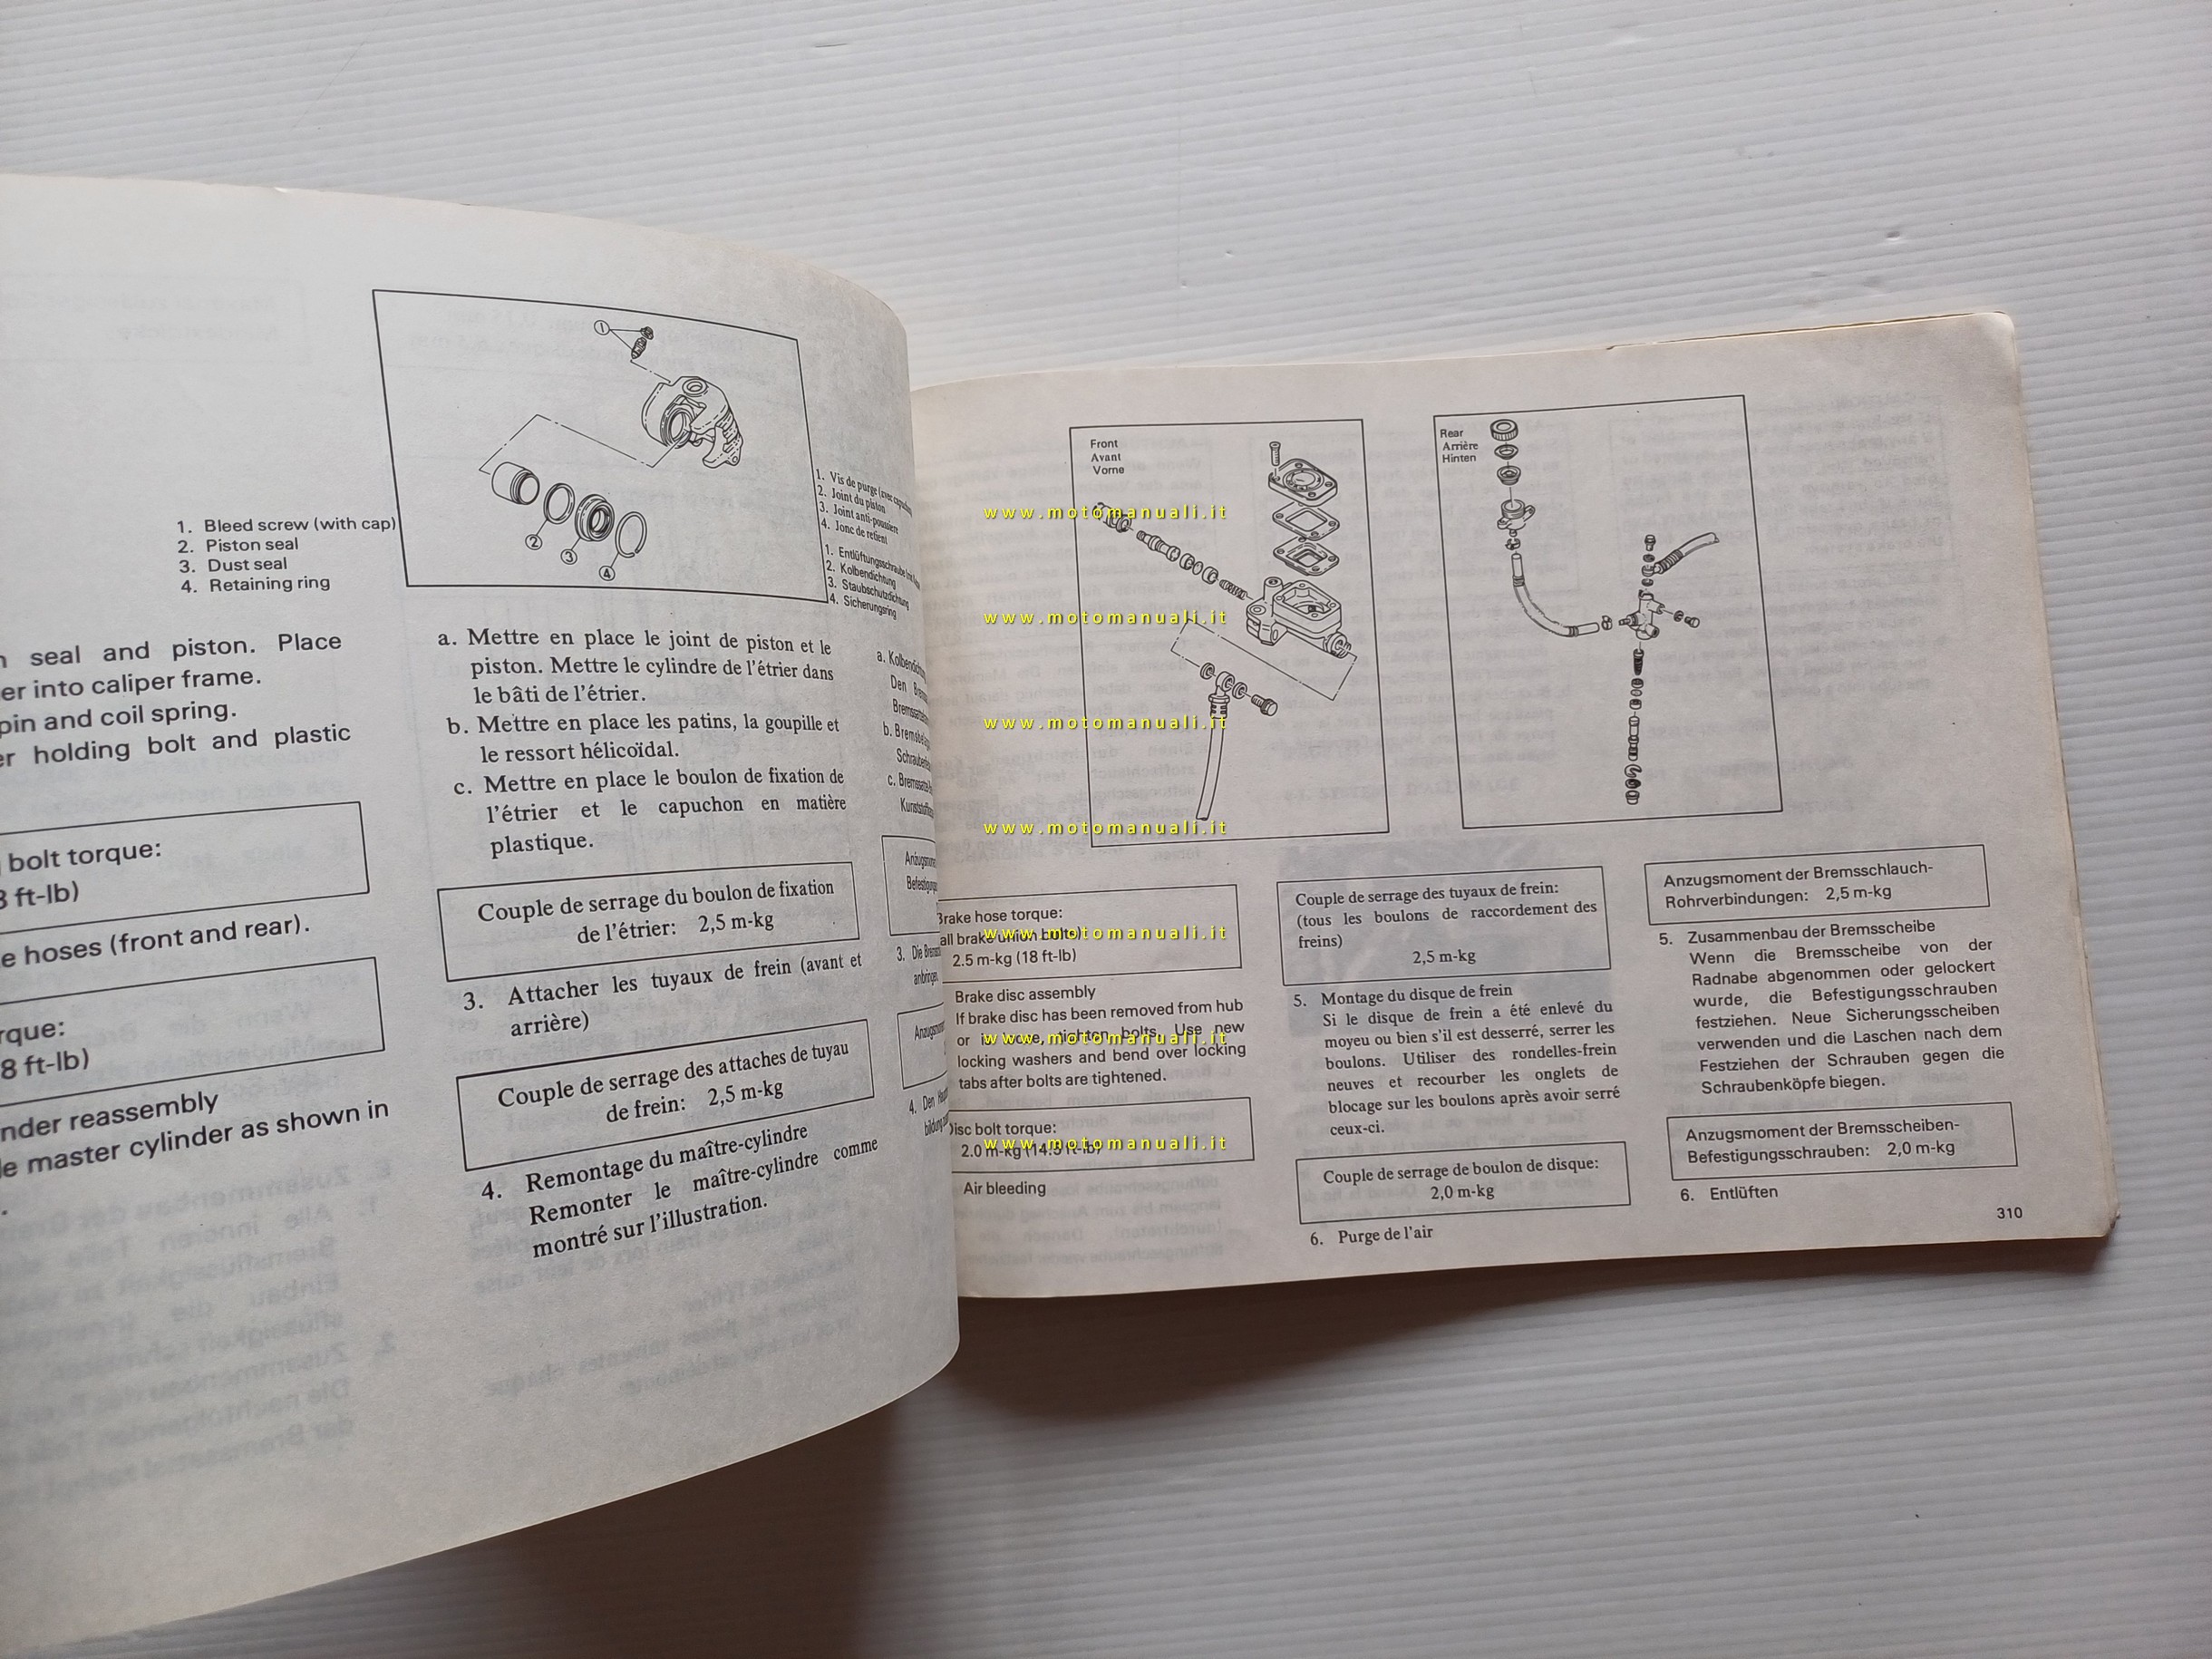 1. Bleed screw (with cap)
2. Piston seal
3. Dust seal
4. Retaining ring
seal and piston. Place
er into caliper frame.
pin and coil spring.
er holding bolt and plastic
bolt torque:
ft-lb)
e hoses (front and rear).
rque:
8 ft-lb)
nder reassembly
le master cylinder as shown in
1
2
3
4
1. Vis de purge (avec capuchon)
2. Joint du piston
3. Joint anti-poussière
4. Jonc de retient
1. Entlüftungsschraube
2. Kolbendichtung
3. Staubschutzdichtung
4. Sicherungsring
a. Mettre en place le joint de piston et le
piston. Mettre le cylindre de l'étrier dans
le bâti de l'étrier.
b. Mettre en place les patins, la goupille et
le ressort hélicoïdal.
c. Mettre en place le boulon de fixation de
l'étrier et le capuchon en matière
plastique.
Couple de serrage du boulon de fixation
de l'étrier: 2,5 m-kg
3. Attacher les tuyaux de frein (avant et
arrière)
Couple de serrage des attaches de tuyau
de frein: 2,5 m-kg
4. Remontage du maître-cylindre
Remonter le maître-cylindre comme
montré sur l'illustration.
a. Kolbendich
Den
b.
c.
3. Die
anbringen
4. Den
Front
Avant
Vorne
Rear
Arrière
Hinten
www.motomanuali.it
www.motomanuali.it
www.motomanuali.it
www.motomanuali.it
www.motomanuali.it
www.motomanuali.it
www.motomanuali.it
Brake hose torque:
all brake union bolts)
2.5 m-kg (18 ft-lb)
Brake disc assembly
If brake disc has been removed from hub
or is loose, tighten bolts. Use new
locking washers and bend over locking
tabs after bolts are tightened.
Disc bolt torque:
2.0 m-kg (14.5 ft-lb)
Air bleeding
Couple de serrage des tuyaux de frein:
(tous les boulons de raccordement des
freins)
2,5 m-kg
5. Montage du disque de frein
Si le disque de frein a été enlevé du
moyeu ou bien s'il est desserré, serrer les
boulons. Utiliser des rondelles-frein
neuves et recourber les onglets de
blocage sur les boulons après avoir serré
ceux-ci.
Couple de serrage de boulon de disque:
2,0 m-kg
6. Purge de l'air
Anzugsmoment der Bremsschlauch-
Rohrverbindungen: 2,5 m-kg
5. Zusammenbau der Bremsscheibe
Wenn die Bremsscheibe von der
Radnabe abgenommen oder gelockert
wurde, die Befestigungsschrauben
festziehen. Neue Sicherungsscheiben
verwenden und die Laschen nach dem
Festziehen der Schrauben gegen die
Schraubenköpfe biegen.
Anzugsmoment der Bremsscheiben-
Befestigungsschrauben: 2,0 m-kg
6. Entlüften
310